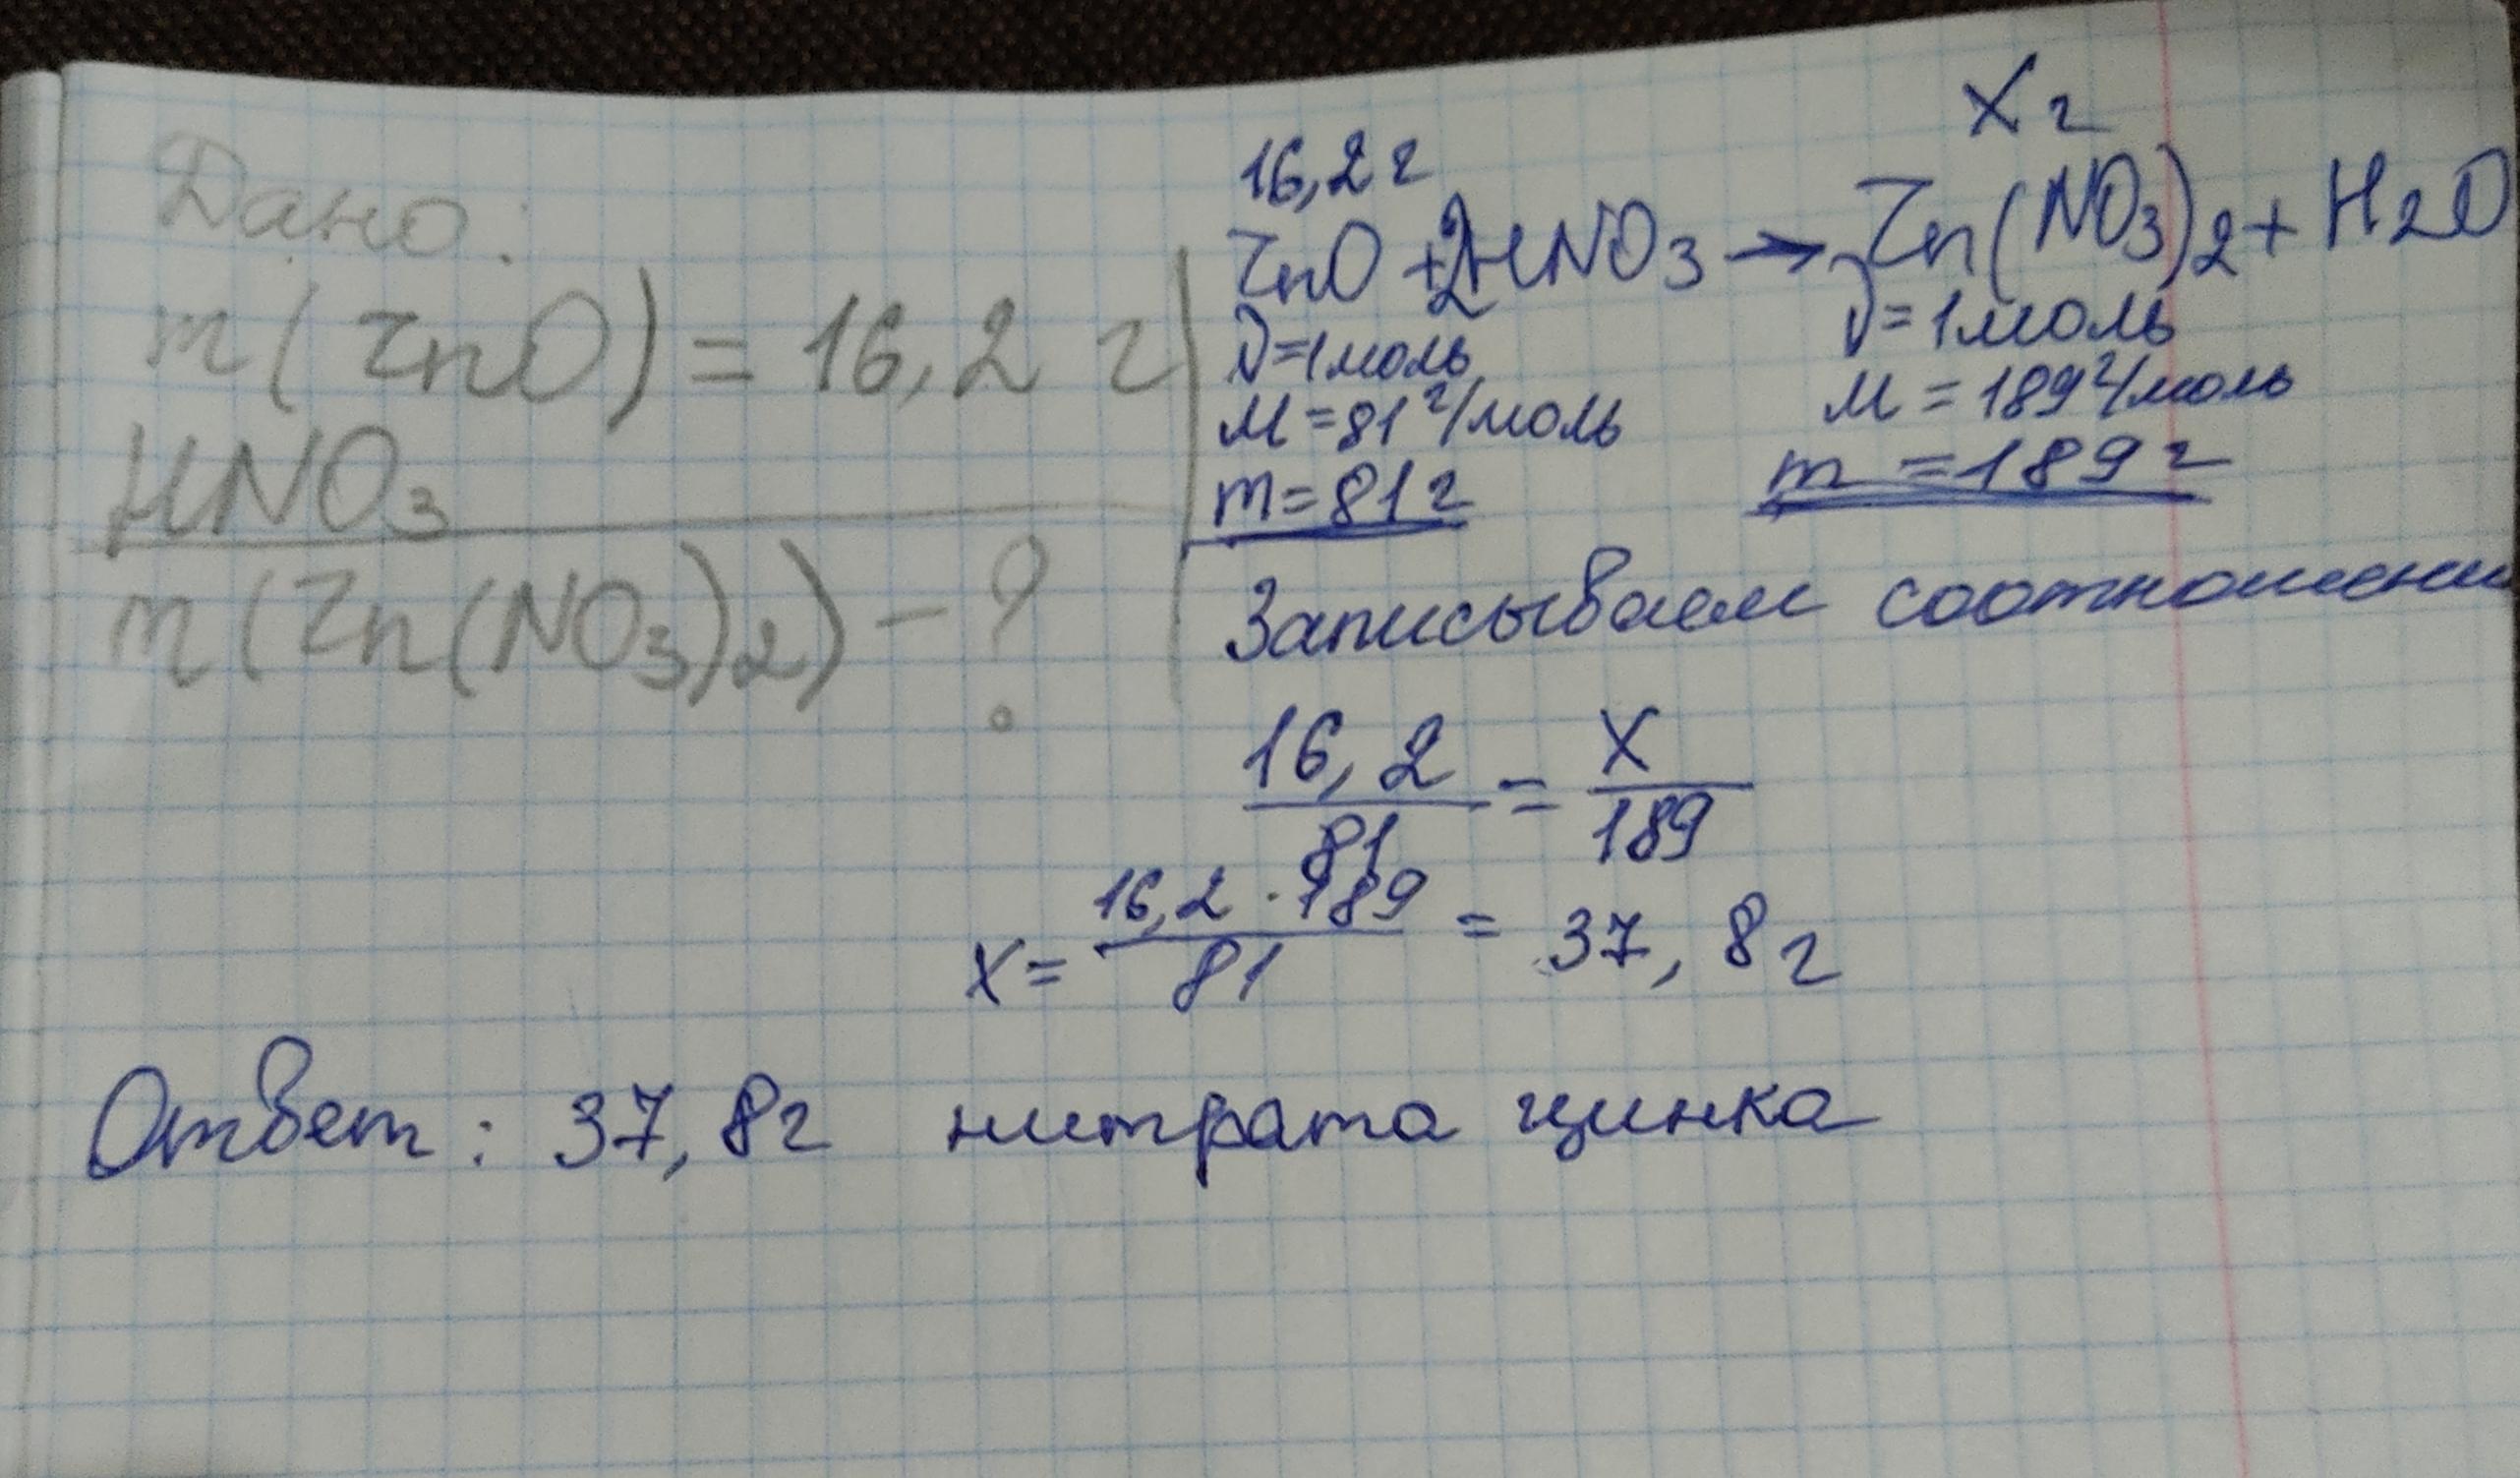 Дано:
m(ZnO) = 16,2 г
HNO3
m(Zn(NO3)2) - ?
16,2 г
X г
ZnO + 2HNO3 → Zn(NO3)2 + H2O
ν=1моль
ν=1моль
M=81 г/моль
M=189 г/моль
m=81 г
m=189 г
Записываем соотношени
16,2/81 = X/189
X = 16,2 · 189/81 = 37,8 г
Ответ: 37,8 г нитрата цинка